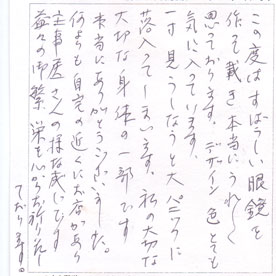 この度はすばらしい眼鏡を
作って戴き本当にうれしく
思っております。デザイン 色とても
気に入っています。
一寸見うしなうと大パニックに
落入ってしまいます。私の大切な
大切な身体の一部です
本当にありがとうございました。
何よりも自宅の近くにお店があり
主事医さんの様な感じです
益々の御繁栄を心からお祈りし
ております。